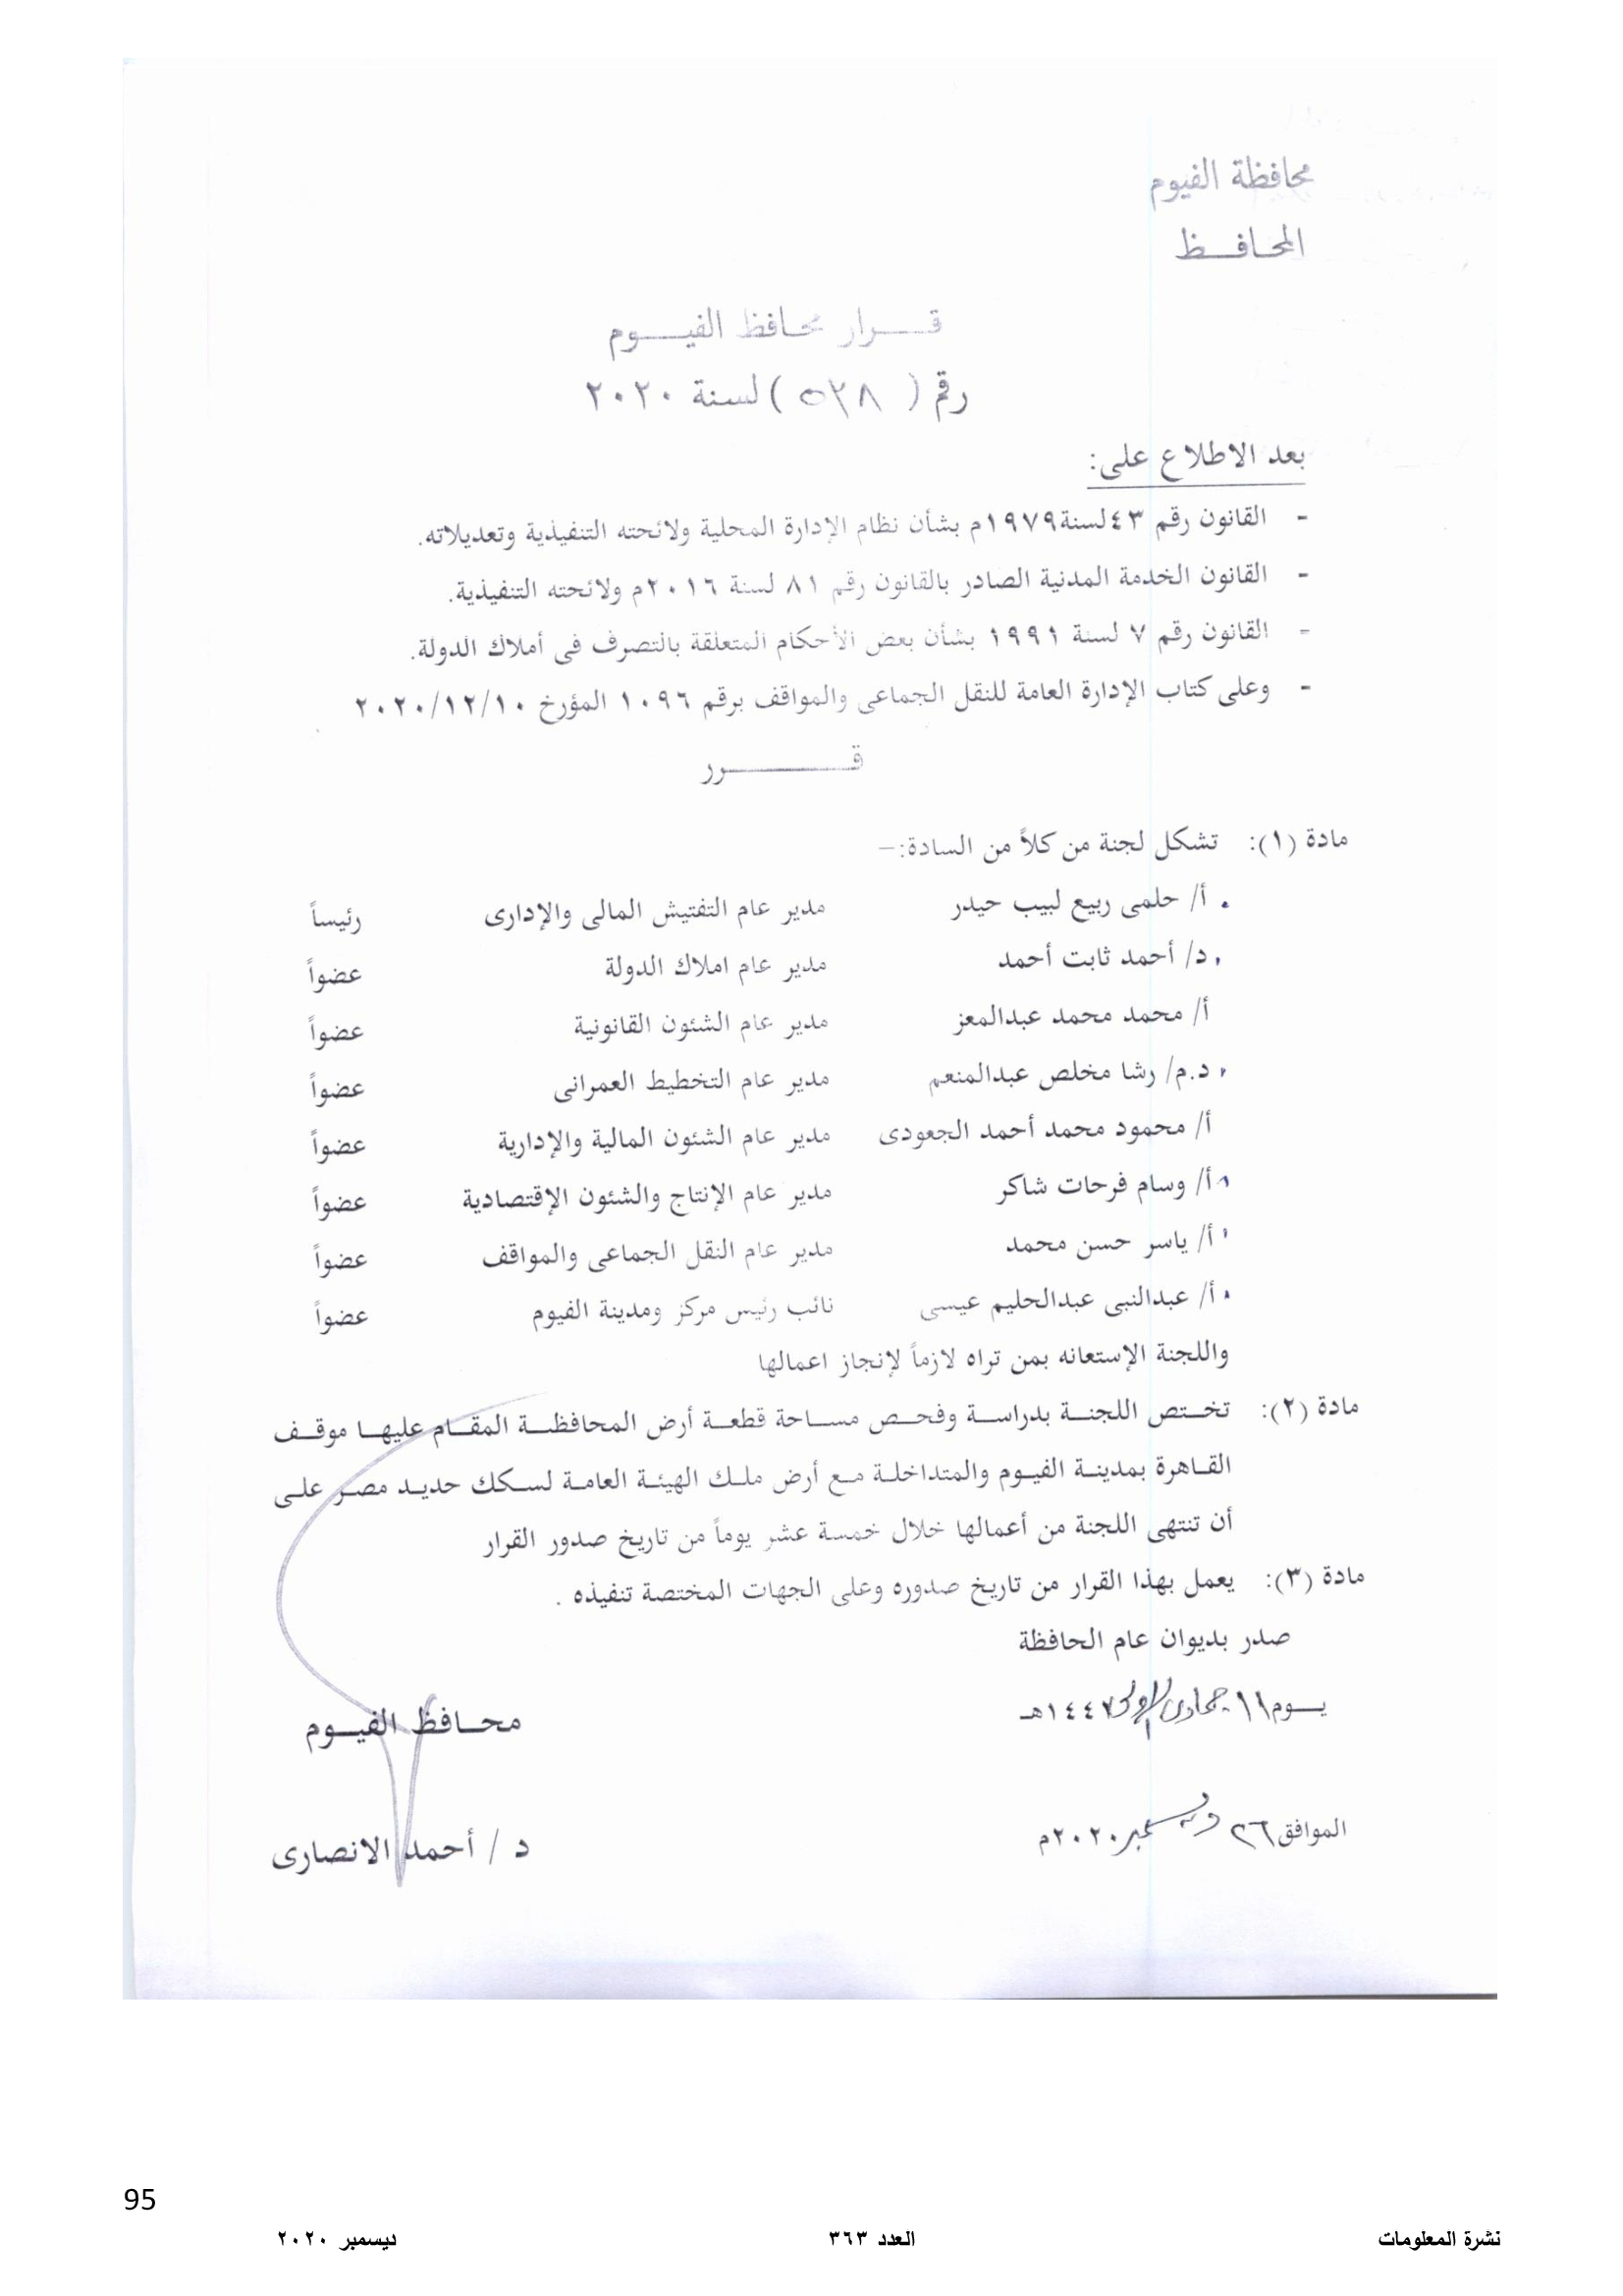 محافظة الفيوم
المحافـــظ
قــــرار محـافظ الفيــــوم
رقم ( ٥٢٨ ) لسنة ٢٠٢٠
بعد الاطلاع على:
- القانون رقم ٤٣ لسنة ١٩٧٩م بشأن نظام الإدارة المحلية ولائحته التنفيذية وتعديلاته.
- القانون الخدمة المدنية الصادر بالقانون رقم ٨١ لسنة ٢٠١٦م ولائحته التنفيذية.
- القانون رقم ٧ لسنة ١٩٩١ بشأن بعض الأحكام المتعلقة بالتصرف فى أملاك الدولة.
- وعلى كتاب الإدارة العامة للنقل الجماعى والمواقف برقم ١٠٩٦ المؤرخ ٢٠٢٠/١٢/١٠
قـــــــــرر
مادة (١): تشكل لجنة من كلاً من السادة:–
أ/ حلمى ربيع لبيب حيدر مدير عام التفتيش المالى والإدارى رئيساً
د/ أحمد ثابت أحمد مدير عام املاك الدولة عضواً
أ/ محمد محمد عبدالمعز مدير عام الشئون القانونية عضواً
د.م/ رشا مخلص عبدالمنعم مدير عام التخطيط العمرانى عضواً
أ/ محمود محمد أحمد الجعودى مدير عام الشئون المالية والإدارية عضواً
أ/ وسام فرحات شاكر مدير عام الإنتاج والشئون الإقتصادية عضواً
أ/ ياسر حسن محمد مدير عام النقل الجماعى والمواقف عضواً
أ/ عبدالنبى عبدالحليم عيسى نائب رئيس مركز ومدينة الفيوم عضواً
واللجنة الإستعانه بمن تراه لازماً لإنجاز اعمالها
مادة (٢): تختص اللجنة بدراسة وفحص مساحة قطعة أرض المحافظة المقام عليها موقف
القاهرة بمدينة الفيوم والمتداخلة مع أرض ملك الهيئة العامة لسكك حديد مصر على
أن تنتهى اللجنة من أعمالها خلال خمسة عشر يوماً من تاريخ صدور القرار
مادة (٣): يعمل بهذا القرار من تاريخ صدوره وعلى الجهات المختصة تنفيذه .
صدر بديوان عام الحافظة
يـــوم ١١ جمادى الأولى ١٤٤٢هـ
محـافظ الفيـــوم
الموافق ٢٦ ديسمبر ٢٠٢٠م
د / أحمد الانصارى
95
نشرة المعلومات العدد ٣٦٣ ديسمبر ٢٠٢٠